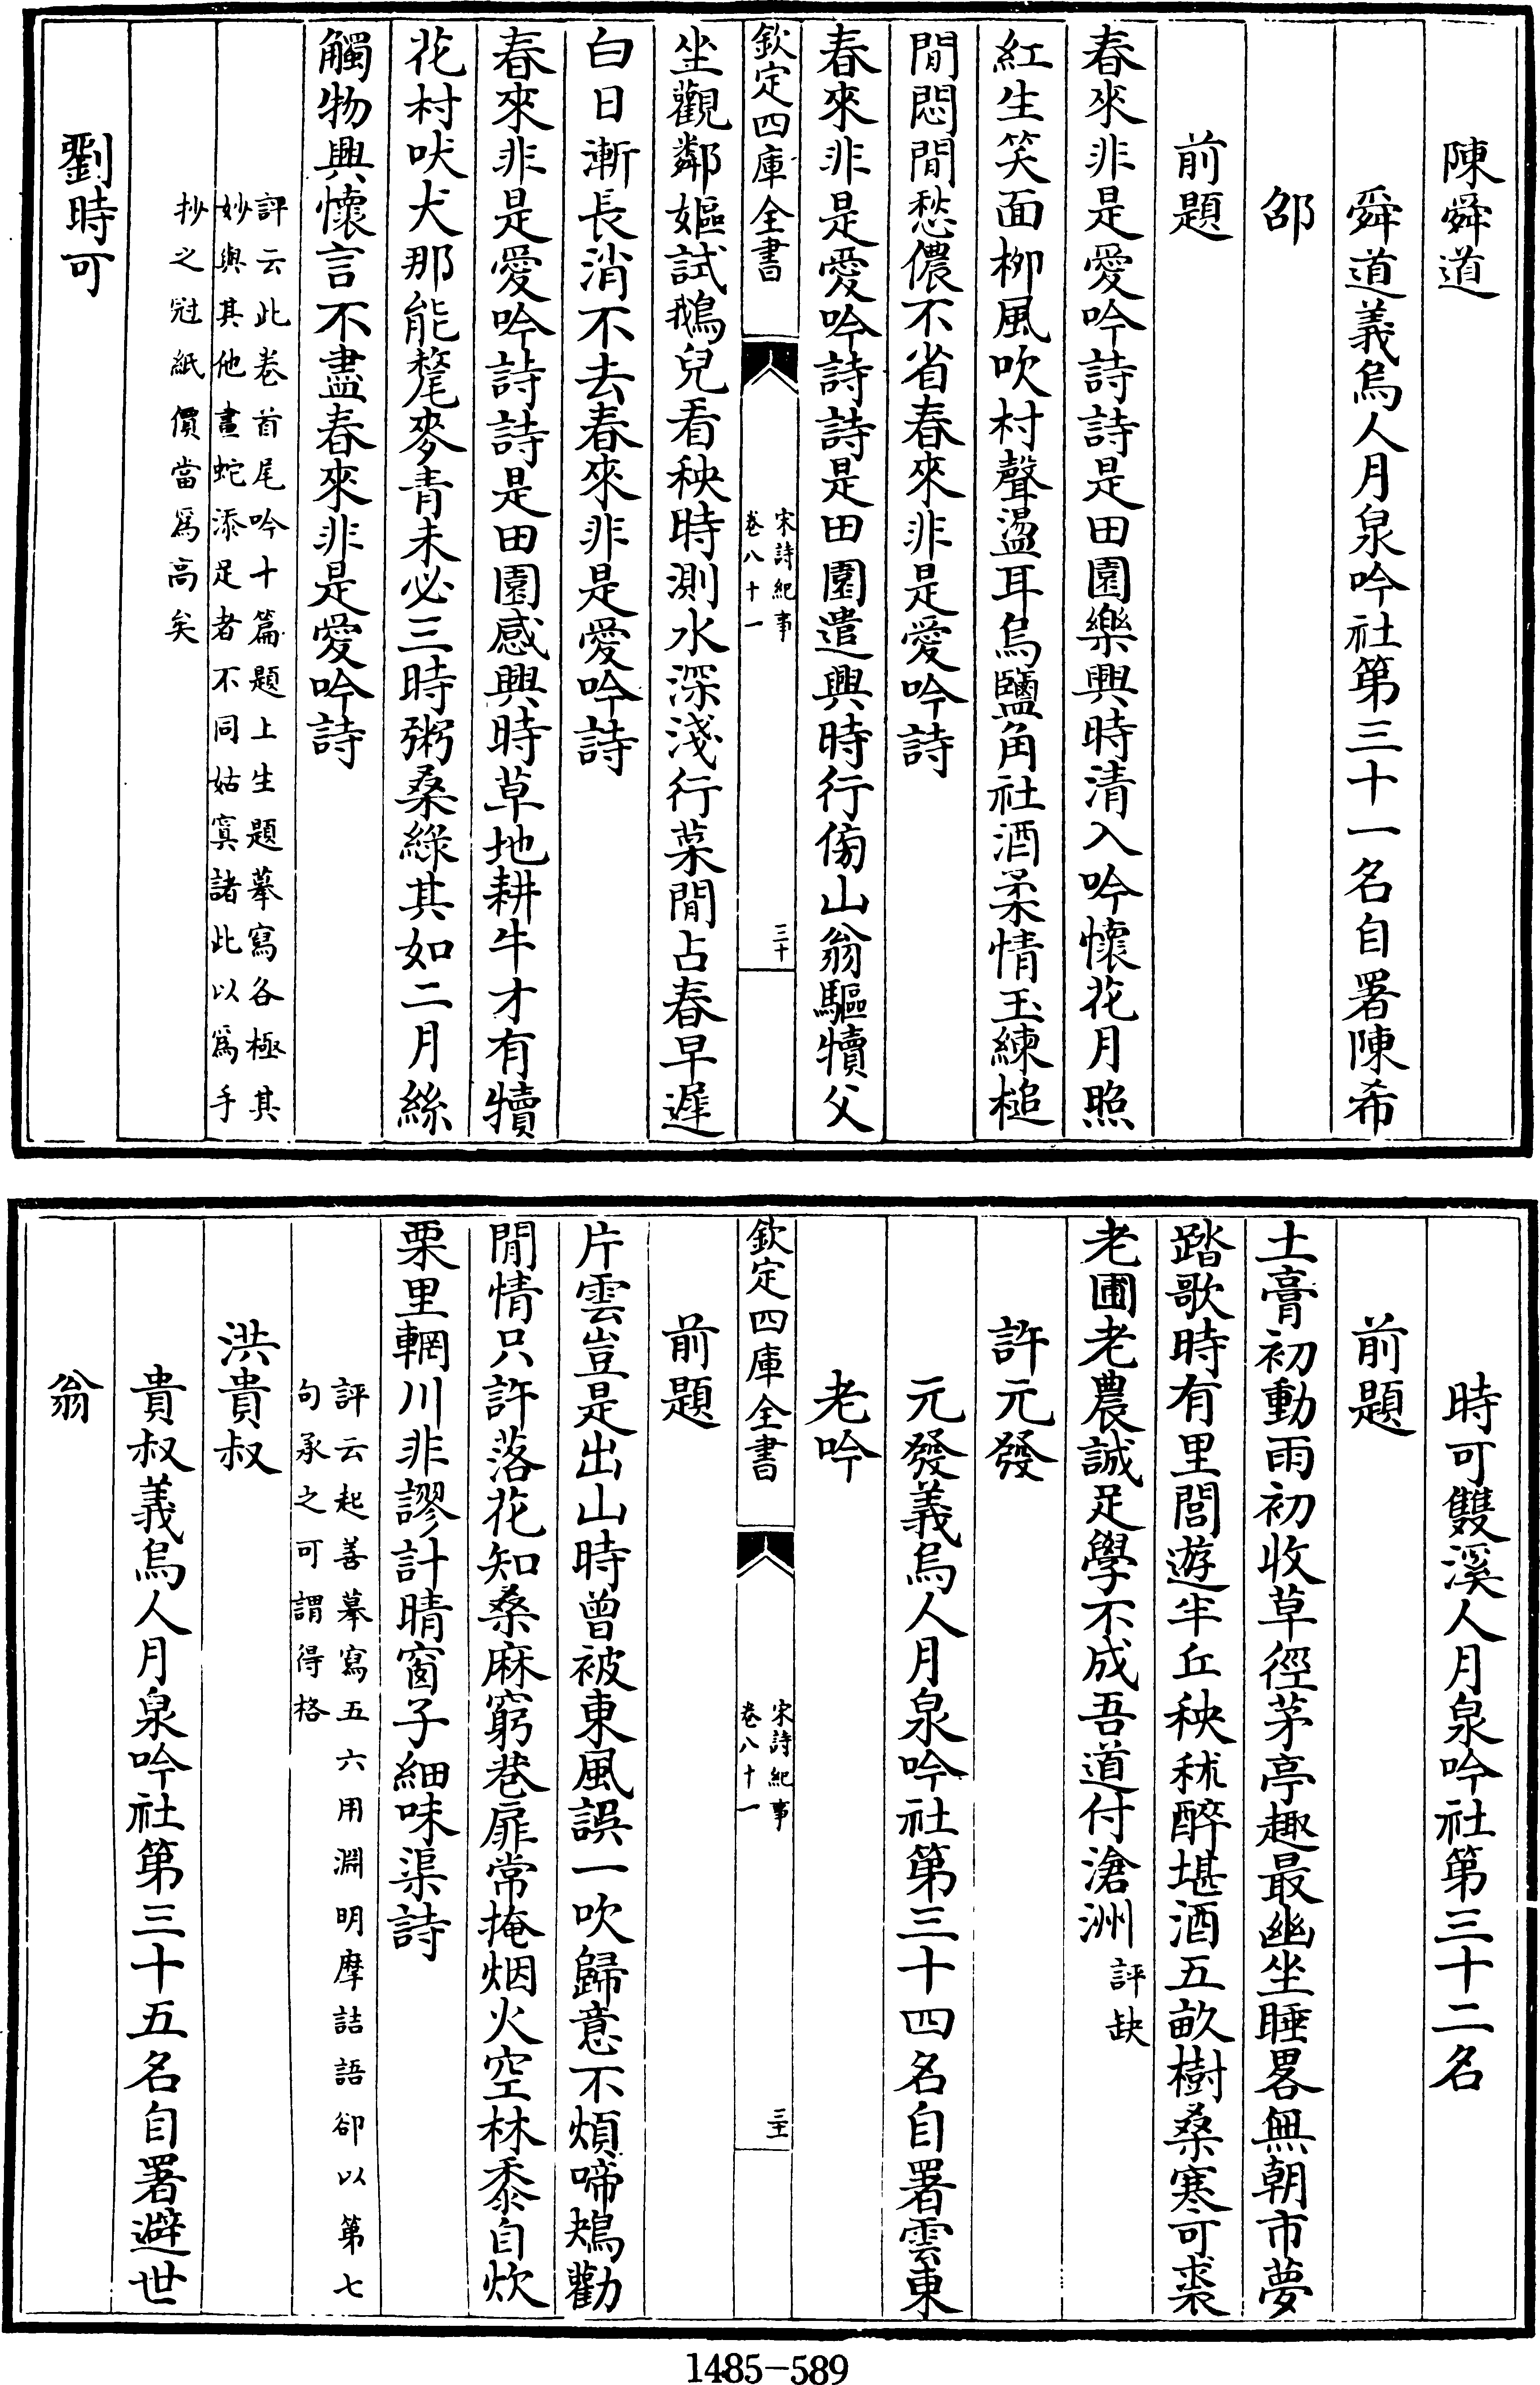 陳舜道
舜道義烏人月泉吟社第三十一名自署陳希
邵
前題
春來非是愛吟詩詩是田園樂興時清入吟懷花月照
紅生笑面柳風吹村聲盪耳烏鹽角社酒柔情玉練槌
閒悶閒愁儂不省春來非是愛吟詩
春來非是愛吟詩詩是田園遣興時行傍山翁驅犢父
欽定四庫全書
宋詩紀事
卷八十一
三十
坐觀鄰嫗試鵝兒看秧時測水深淺行菜閒占春早遲
白日漸長消不去春來非是愛吟詩
春來非是愛吟詩詩是田園感興時草地耕牛才有犢
花村吠犬那能氂麥青未必三時粥桑綠其如二月絲
觸物興懷言不盡春來非是愛吟詩
評云此卷首尾吟十篇題上生題摹寫各極其
妙與其他畫蛇添足者不同姑寘諸此以爲手
抄之冠紙價當爲高矣
劉時可
時可雙溪人月泉吟社第三十二名
前題
土膏初動雨初收草徑茅亭趣最幽坐睡畧無朝市夢
踏歌時有里閭遊半丘秧秫醉堪酒五畝樹桑寒可裘
老圃老農誠足學不成吾道付滄洲評缺
許元發
元發義烏人月泉吟社第三十四名自署雲東
老吟
欽定四庫全書
宋詩紀事
卷八十一
三十一
前題
片雲豈是出山時曾被東風誤一吹歸意不煩啼鴂勸
閒情只許落花知桑麻窮巷扉常掩烟火空林黍自炊
栗里輞川非謬計晴窗子細味渠詩
評云起善摹寫五六用淵明摩詰語卻以第七
句承之可謂得格
洪貴叔
貴叔義烏人月泉吟社第三十五名自署避世
翁
1485-589